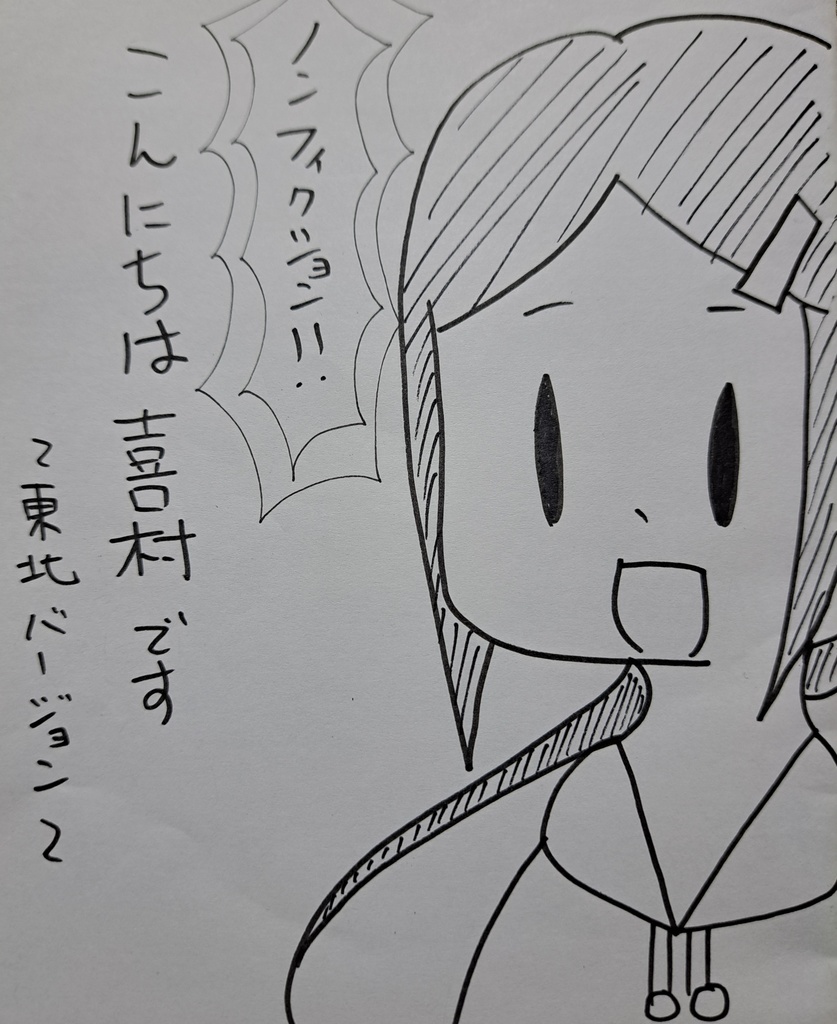 ノンフィクション!!
こんにちは 喜村です
～東北バージョン～